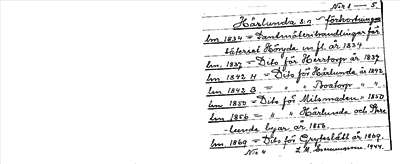 No 1 — 5.
Härlunda s:n förkortningar
lm. 1834 = Lantmäterihandlingar för
säteriet Hönjde m.fl. år 1834.
lm. 1837 = Dito för Herrtorp år 1837
lm 1842 H = Dito för Härlunda år 1842
lm 1842 B = " " Boatorp " "
lm 1850 = Dito för Mitsmaden " 1850
lm 1856 = " " Härlunda och
lunda byar år 1856.
lm. 1869 = Dito för år 1869.
No 4 1944.